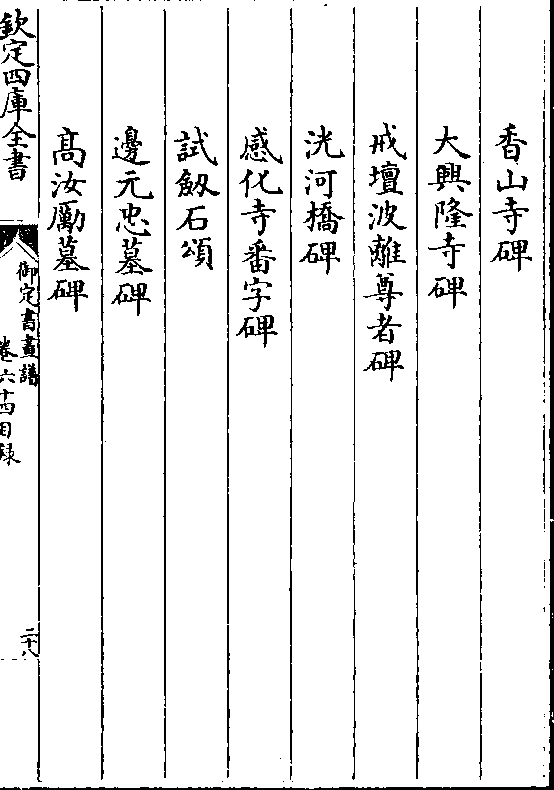 香山寺碑
大興隆寺碑
戒壇波離尊者碑
洸河橋碑
感化寺番字碑
試劔石頌
邊元忠墓碑
高汝勵墓碑
欽定四庫全書
御定書畫譜
卷六十四目錄
二十八